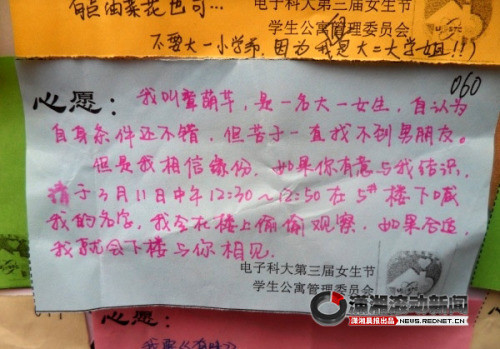 电子科大第三届女生节
学生公寓管理委员会
不要大一小学弟,因为我是大二大学姐!!)
060
心愿: 我叫龚萌芊,是一名大一女生,自认为
自身条件还不错,但苦于一直找不到男朋友。
但是我相信缘份,如果你有意与我结识,
请于3月11日中午12:30~12:50在5#楼下喊
我的名字,我会在楼上偷偷观察,如果合适,
我就会下楼与你相见.
电子科大第三届女生节
学生公寓管理委员会
心愿:
潇湘滚动新闻
潇湘晨报出品
NEWS.REDNET.CN